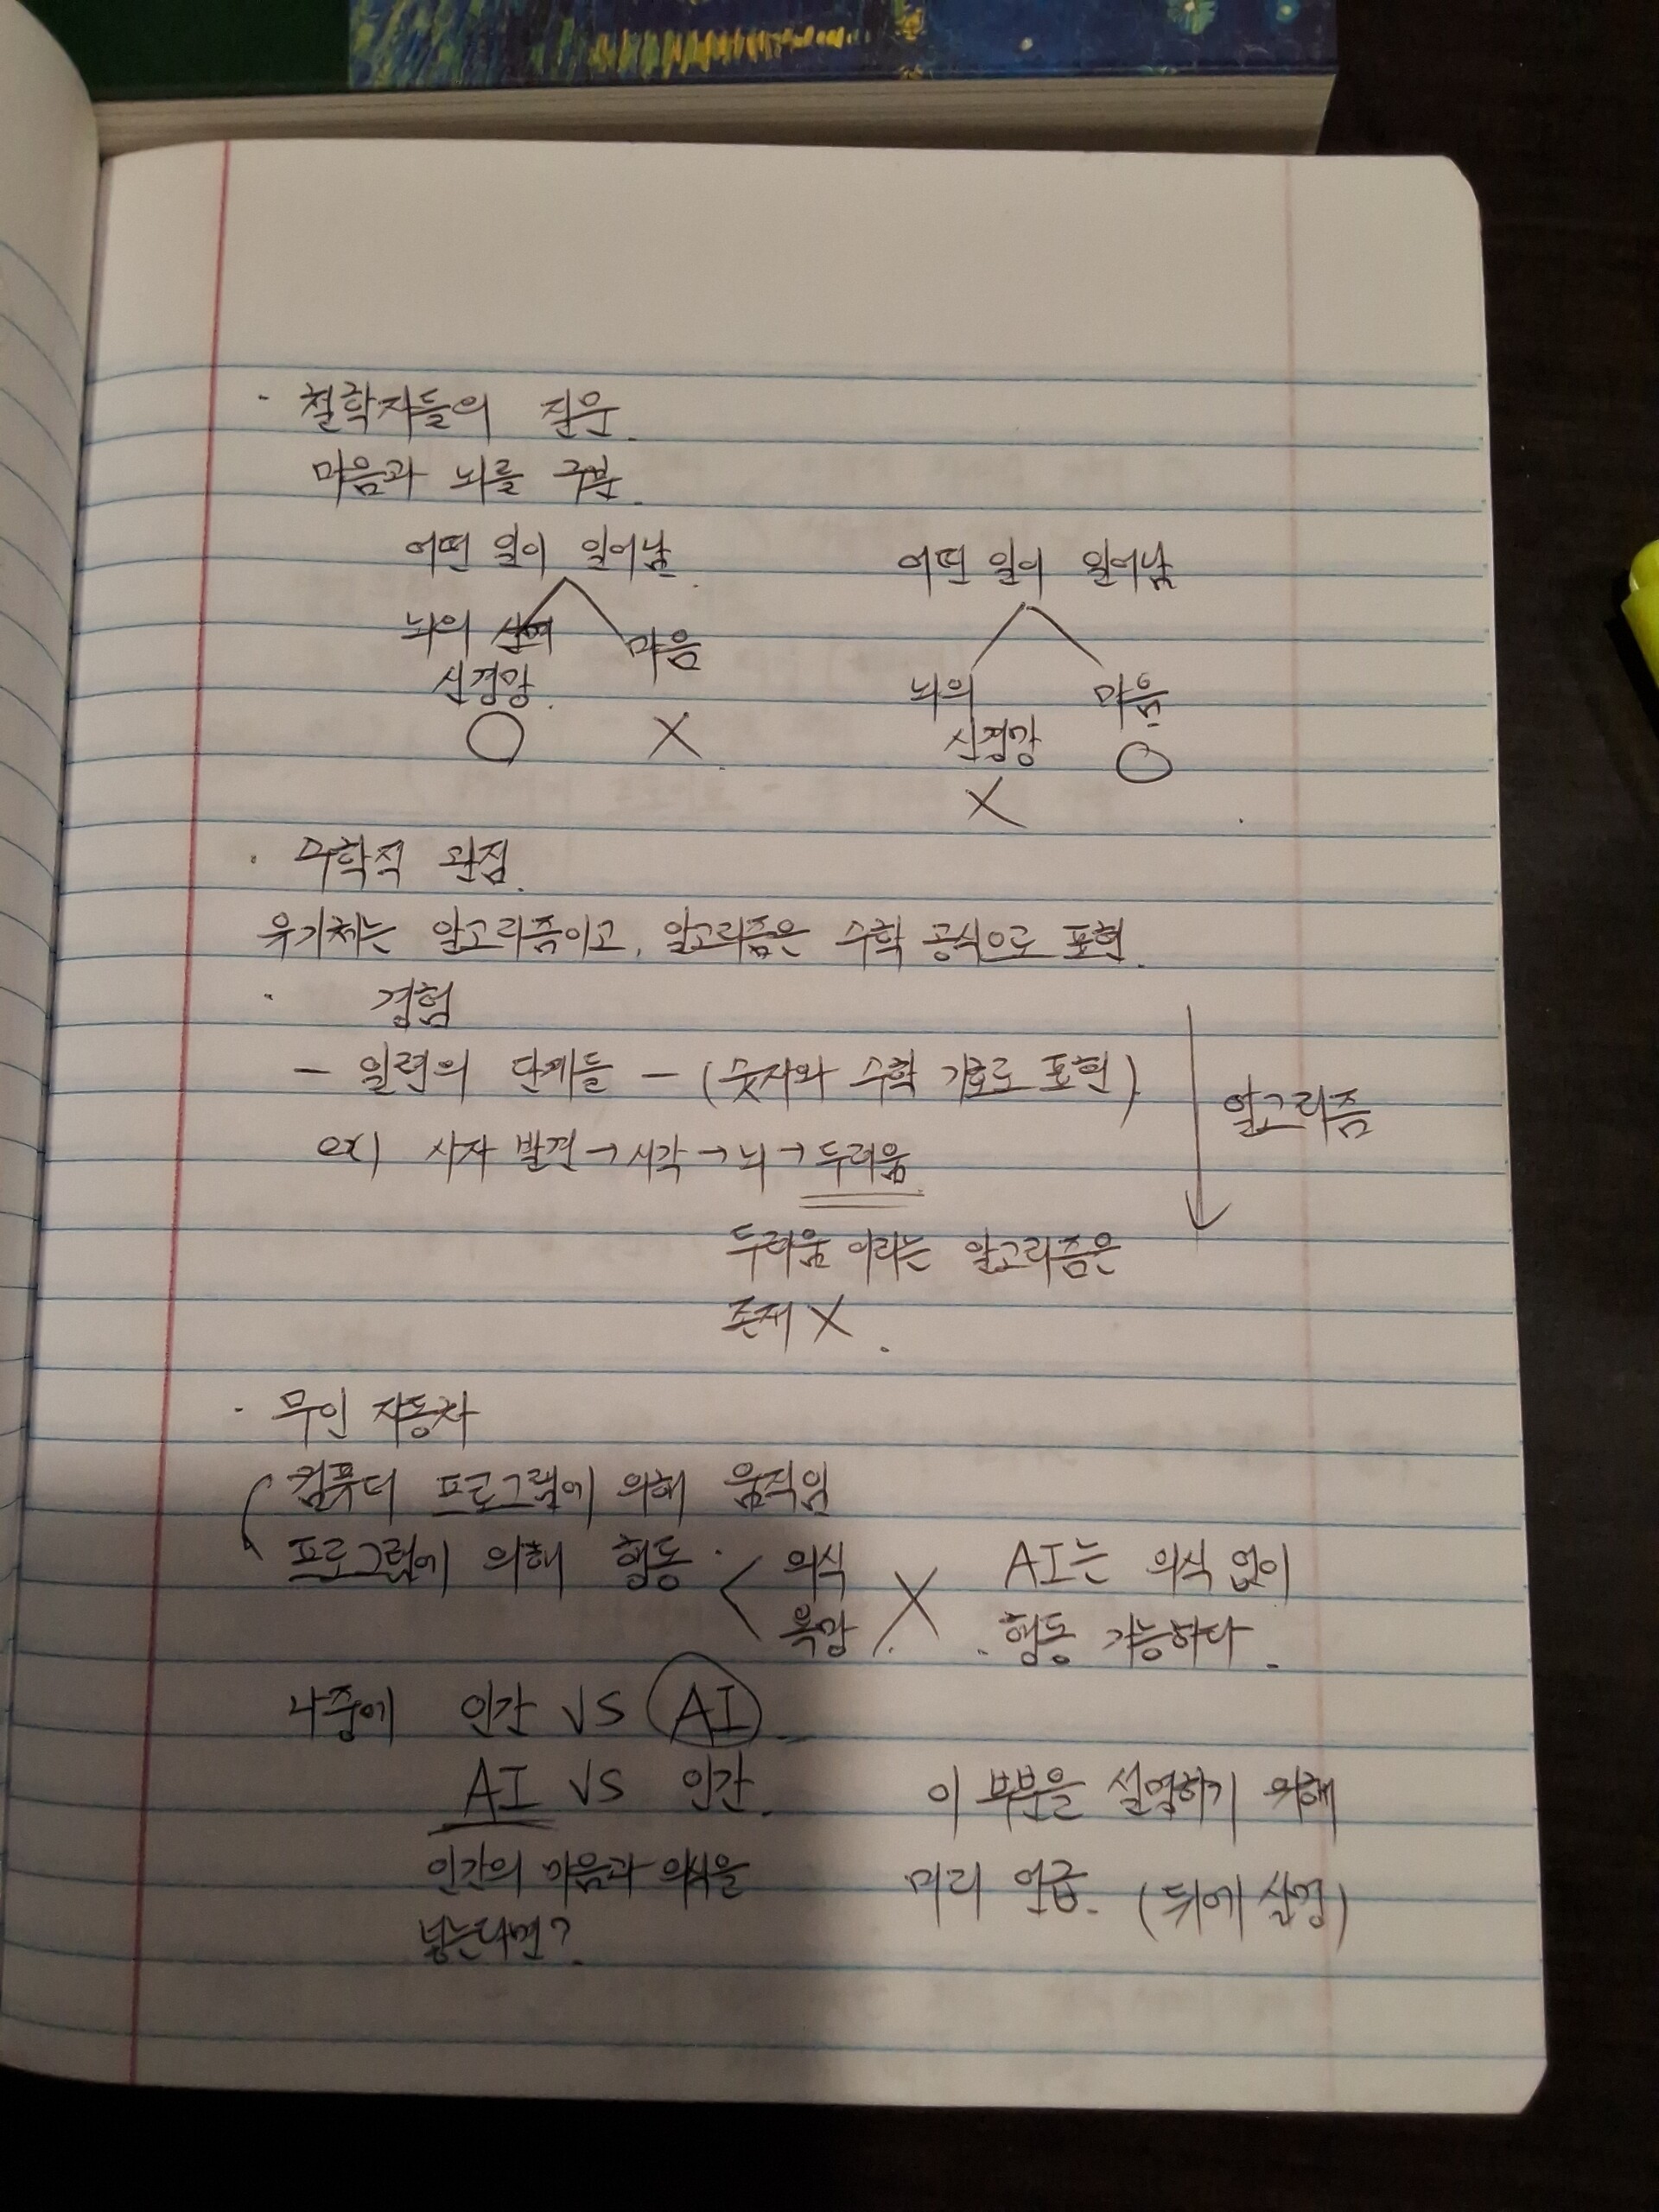 · 철학자들의 질문.
마음과 뇌를 구분.
어떤 일이 일어남. 어떤 일이 일어남
뇌의 신경망. 마음 뇌의 신경망 마음.
○ X. X ○
· 수학적 관점.
유기체는 알고리즘이고, 알고리즘은 수학 공식으로 표현.
· 경험
- 일련의 단계들 - (숫자와 수학 기호로 표현)
알고리즘
ex) 사자 발견 → 시각 → 뇌 → 두려움.
두려움 이라는 알고리즘은
존재 X.
· 무인 자동차
컴퓨터 프로그램에 의해 움직임
프로그램에 의해 행동. < 의식 욕망 X
AI는 의식 없이
행동 가능하다.
나중에 인간 VS AI
AI VS 인간.
인간의 마음과 의식을
넣는다면?
이 부분을 설명하기 위해
미리 언급. (뒤에 설명)